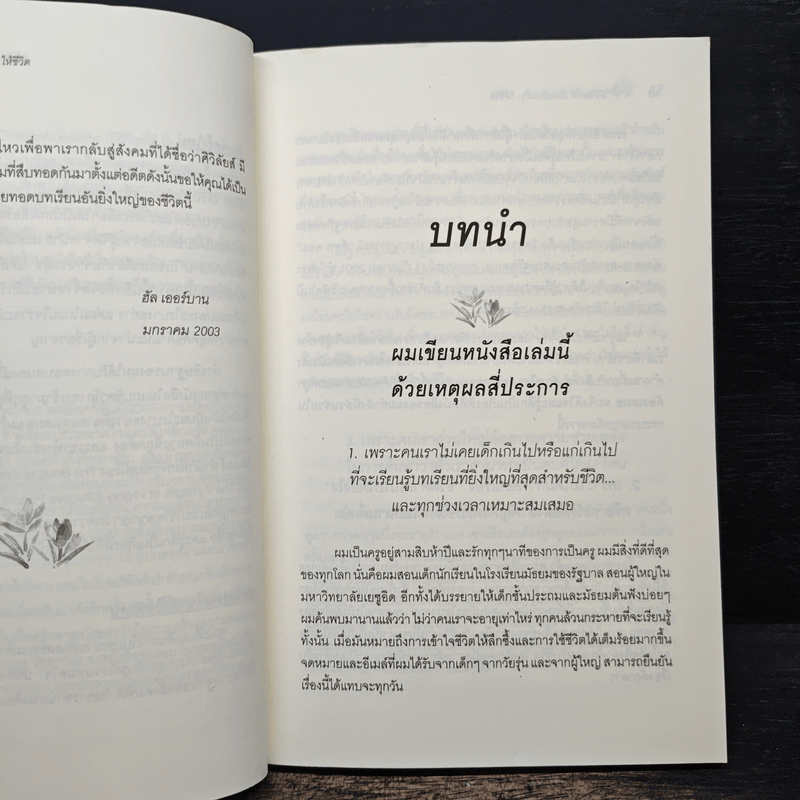 ให้ชีวิต
ไหวเพื่อพาเรากลับสู่สังคมที่ได้ชื่อว่าศิวิลัยส์ มี
มที่สืบทอดกันมาตั้งแต่อดีตดังนั้นขอให้คุณได้เป็น
ยทอดบทเรียนอันยิ่งใหญ่ของชีวิตนี้
ฮัล เออร์บาน
มกราคม 2003
บทนำ
ผมเขียนหนังสือเล่มนี้
ด้วยเหตุผลสี่ประการ
1. เพราะคนเราไม่เคยเด็กเกินไปหรือแก่เกินไป
ที่จะเรียนรู้บทเรียนที่ยิ่งใหญ่ที่สุดสำหรับชีวิต...
และทุกช่วงเวลาเหมาะสมเสมอ
ผมเป็นครูอยู่สามสิบห้าปีและรักทุกๆนาทีของการเป็นครู ผมมีสิ่งที่ดีที่สุด
ของทุกโลก นั่นคือผมสอนเด็กนักเรียนในโรงเรียนมัธยมของรัฐบาล สอนผู้ใหญ่ใน
มหาวิทยาลัยเยซูอิด อีกทั้งได้บรรยายให้เด็กชั้นประถมและมัธยมต้นฟังบ่อยๆ
ผมค้นพบมานานแล้วว่า ไม่ว่าคนเราจะอายุเท่าไหร่ ทุกคนล้วนกระหายที่จะเรียนรู้
ทั้งนั้น เมื่อมันหมายถึงการเข้าใจชีวิตให้ลึกซึ้งและการใช้ชีวิตได้เต็มร้อยมากขึ้น
จดหมายและอีเมล์ที่ผมได้รับจากเด็กๆ จากวัยรุ่น และจากผู้ใหญ่ สามารถยืนยัน
เรื่องนี้ได้แทบจะทุกวัน